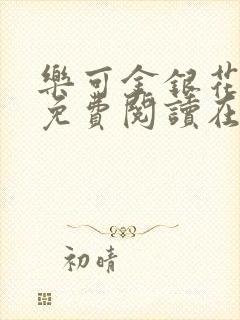 樂可金銀花
免費閱讀在
初晴